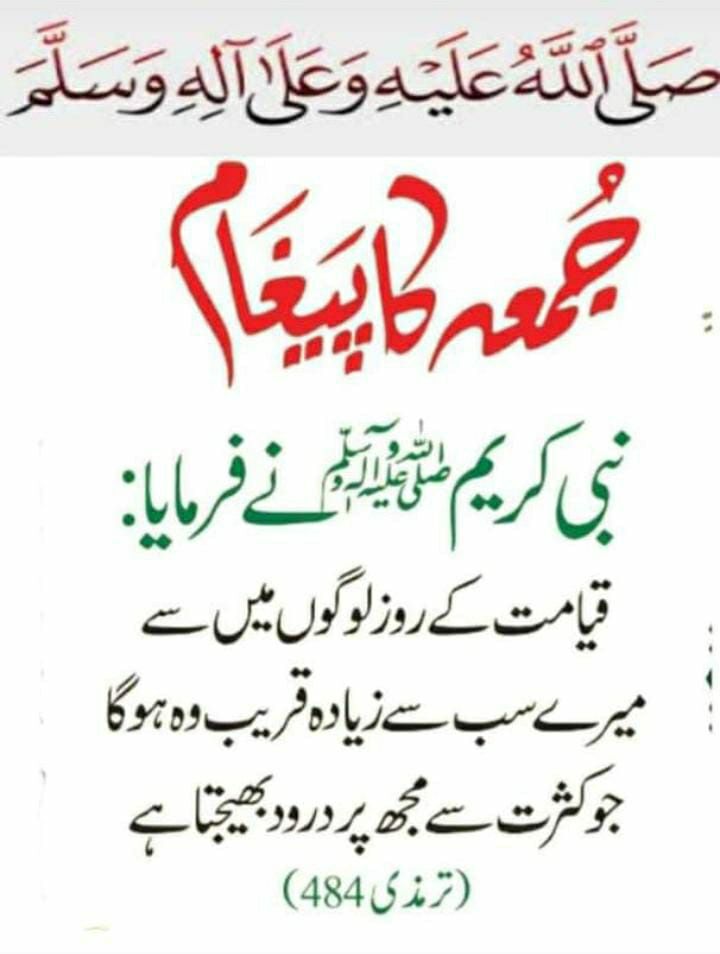 صَلَّى اللَّهُ عَلَيْهِ وَعَلَىٰ آلِهِ وَسَلَّمَ
جُمعہ کا پَیغَام
نبی کریم صلی اللہ علیہ وآلہ وسلم نے فرمایا:
قیامت کے روز لوگوں میں سے
میرے سب سے زیادہ قریب وہ ہوگا
جو کثرت سے مجھ پر درود بھیجتا ہے
(ترمذی 484)